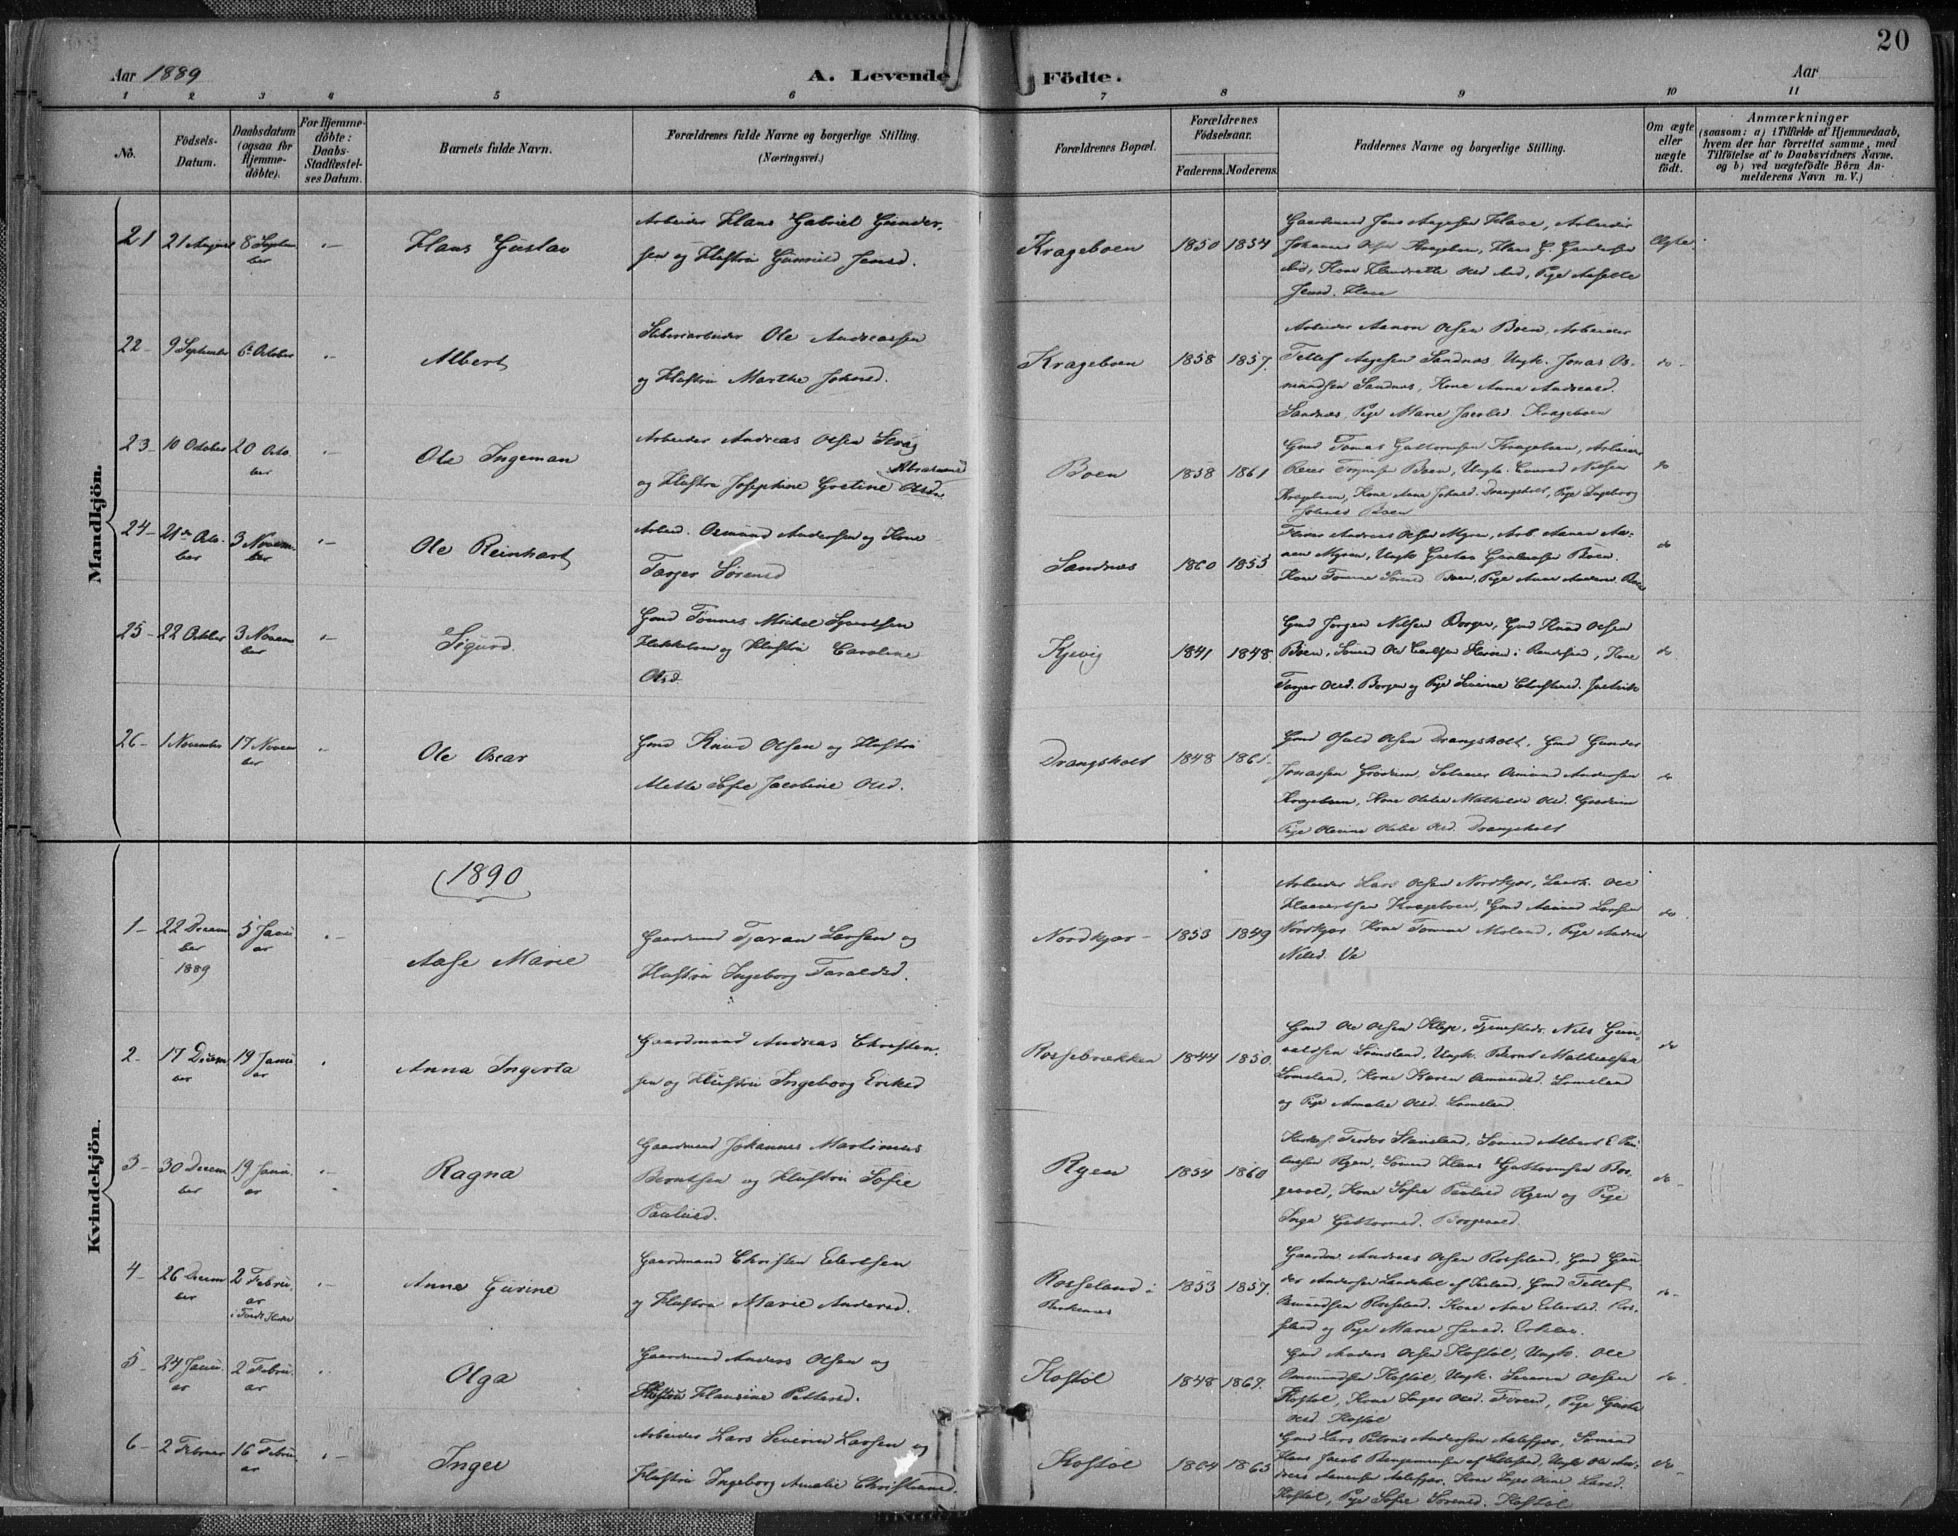 20
Aar 1889
A. Levende Födte.
Aar
1 2 3 4 5 6 7 8 9 10 11
Nö.
Födsels-
Datum.
Daabsdatum
(ogsaa for
Hjemme-
döbte).
For Hjemme-
döbte:
Daabs-
Stadfæstel-
ses Datum.
Barnets fulde Navn.
Forældrenes fulde Navne og borgerlige Stilling.
(Næringsvei.)
Forældrenes Bopæl.
Forældrenes
Födselsaar.
Faderens. Moderens.
Faddernes Navne og borgerlige Stilling.
Om ægte
eller
uægte
født.
Anmærkninger
(saasom: a) i Tilfælde af Hjemmedaab,
hvem der har forrettet samme, med
Tilföielse af to Daabsvidners Navne,
og b) ved uægtefödte Börn An-
melderens Navn m. V.)
Mandkjön.
21 21 August 8 Septem
ber
Hans Gustav
Arbeider Hans Gabriel Gunder-
sen og Hustru Gunvild Jensd.
Krageboen 1850 1854
Gaardmand Jens Aagesen Have, Arbeider
Johannes Olsen Krageboen, Hans G. Gundersen
ibid, Kone Olsd. ibid, Pige
Jensd. Have
Ægte.
22 9 September 6 October
Albert
Ole Andreassen
og Hustru Marthe Johnsd.
Krageboen 1858 1857
Arbeider Aanon Olsen Boen, Arbeider
Tellef Aagesen Sandnes, Ungk. Jonas Os-
mundsen Sandnes, Kone Anna Andreasd.
Sandnes, Pige Marie Jacobsd. Krageboen
do
23 10 October 20 Octo
ber
Ole Ingeman
Arbeider Andreas Olsen
og Hustru Josephine Gretine Abrahamsd
Boen 1858 1861
Gmd Tomas Guttormsen Krageboen, Arbeider
Boen, Ungk. Conrad Nielsen
Krageboen, Kone Anne Johnsd. Drangsholt, Pige Ingeborg
Johnsd Boen
do
24 21de Octo
ber 3 Novem-
ber
Ole Reinhart
Arbeid. Osmund Andersen og Kone
Torger Sørensd
Sandnes 1860 1855
Andreas Olsen Myren, Arb Aanon Aa-
Myren, Ungk Gustav Boen
Kone Tomine Boen, Pige Anne Boen
do
25 22 October 3 Novem
ber
Sigurd
Gmd Tønnes Michal Syvertsen
og Hustru Caroline
Olsd
Kjevig 1841 1848
Gmd Jørgen Nilsen Borgen, Gmd Knud Olsen
Boen, Sømd Ole i Randesund, Kone
Torger Olsd. Borgen og Pige Severine Christensd.
do
26 1 November 17 Novem
ber
Ole Oscar
Gmd Knud Olsen og Hustru
Mette Sofie Jacobine Olsd.
Drangsholt 1848 1861
Gmd Olsen Drangsholt, Gmd Gunder
Jonassen Osmund Andersen
Krageboen, Kone Mathilde Olsd.
Pige Olsd. Drangsholt
do
Kvindekjön.
1890
1 22 Decem
ber
1889 5 Janu
ar
Aase Marie
Gaardmand Tjøran Larsen og
Hustru Ingeborg Taraldsd.
Nordkjær 1853 1849
Arbeider Lars Olsen Nordkjær, Ole
Krageboen, Gmd Larsen
Nordkjær, Kone Tomine Moland, Pige Andrea
Nilsd. Ve
do
2 17 Decem
ber 19 Janu
ar
Anna Ingerta
Gaardmand Andreas Christen-
sen og Hustru Ingeborg Eriksd
Rossebrækken 1844 1850
Gmd Ole Olsen Kleje, Nils Gun-
valdsen Lømsland, Ungk. Bernt Mathiassen
Lømsland, Kone Karen Osmundsd. Lømsland
og Pige Amalie Olsd. Lømsland
do
3 30 Decem
ber 19 Janu
ar
Ragna
Gaardmand Johannes Martinius
Berntsen og Hustru Sofie
Paulsd.
Ryen 1854 1860
Teodor Stameland, Sømd Albert E. Pau-
lussen Ryen, Sømd Hans Guttormsen Bor-
gevold, Kone Sofie Paulsd Ryen og Pige
Inga Guttormsd. Borgevold.
do
4 26 Decem
ber 2 Febru
ar
i Tveit Kirke
Anna Gurine
Gaardmand Christen Eilertsen
og Hustru Marie Andersd.
Rosseland i
Birkenes 1853 1857
Gaardm. Andreas Olsen Rosseland, Gmd Gun
der Andersen, Gmd Tellef
Osmundsen Rosseland, Kone Ane Eilertsd. Ros-
seland og Pige Maren Jensd.
do
5 24 Janu
ar 2 Febru
ar
Olga
Gaardmand Anders Olsen og
Hustru Hansine Pettersd.
Kostøl 1848 1867
Gmd Anders Olsen Kostøl, Ungk. Ole
Osmundsen Kostøl, Ungk. Olsen
Kostøl, Kone Inger Olsd. Foss, Pige
Olsd Kostøl
do
6 2 Februar 16 Febru
ar
Inger
Arbeider Lars Severin Larsen og
Hustru Ingeborg Amalie Christiansd.
Kostøl 1864 1865
Gmd Lars Petrus Andersen Aalefjær, Sømand
Hans Jacob Ungk Ole An-
dreas Aanensen Aalefjær, Kone Larsd.
Kostøl, Pige Sofie Sørensd. Kostøl
do